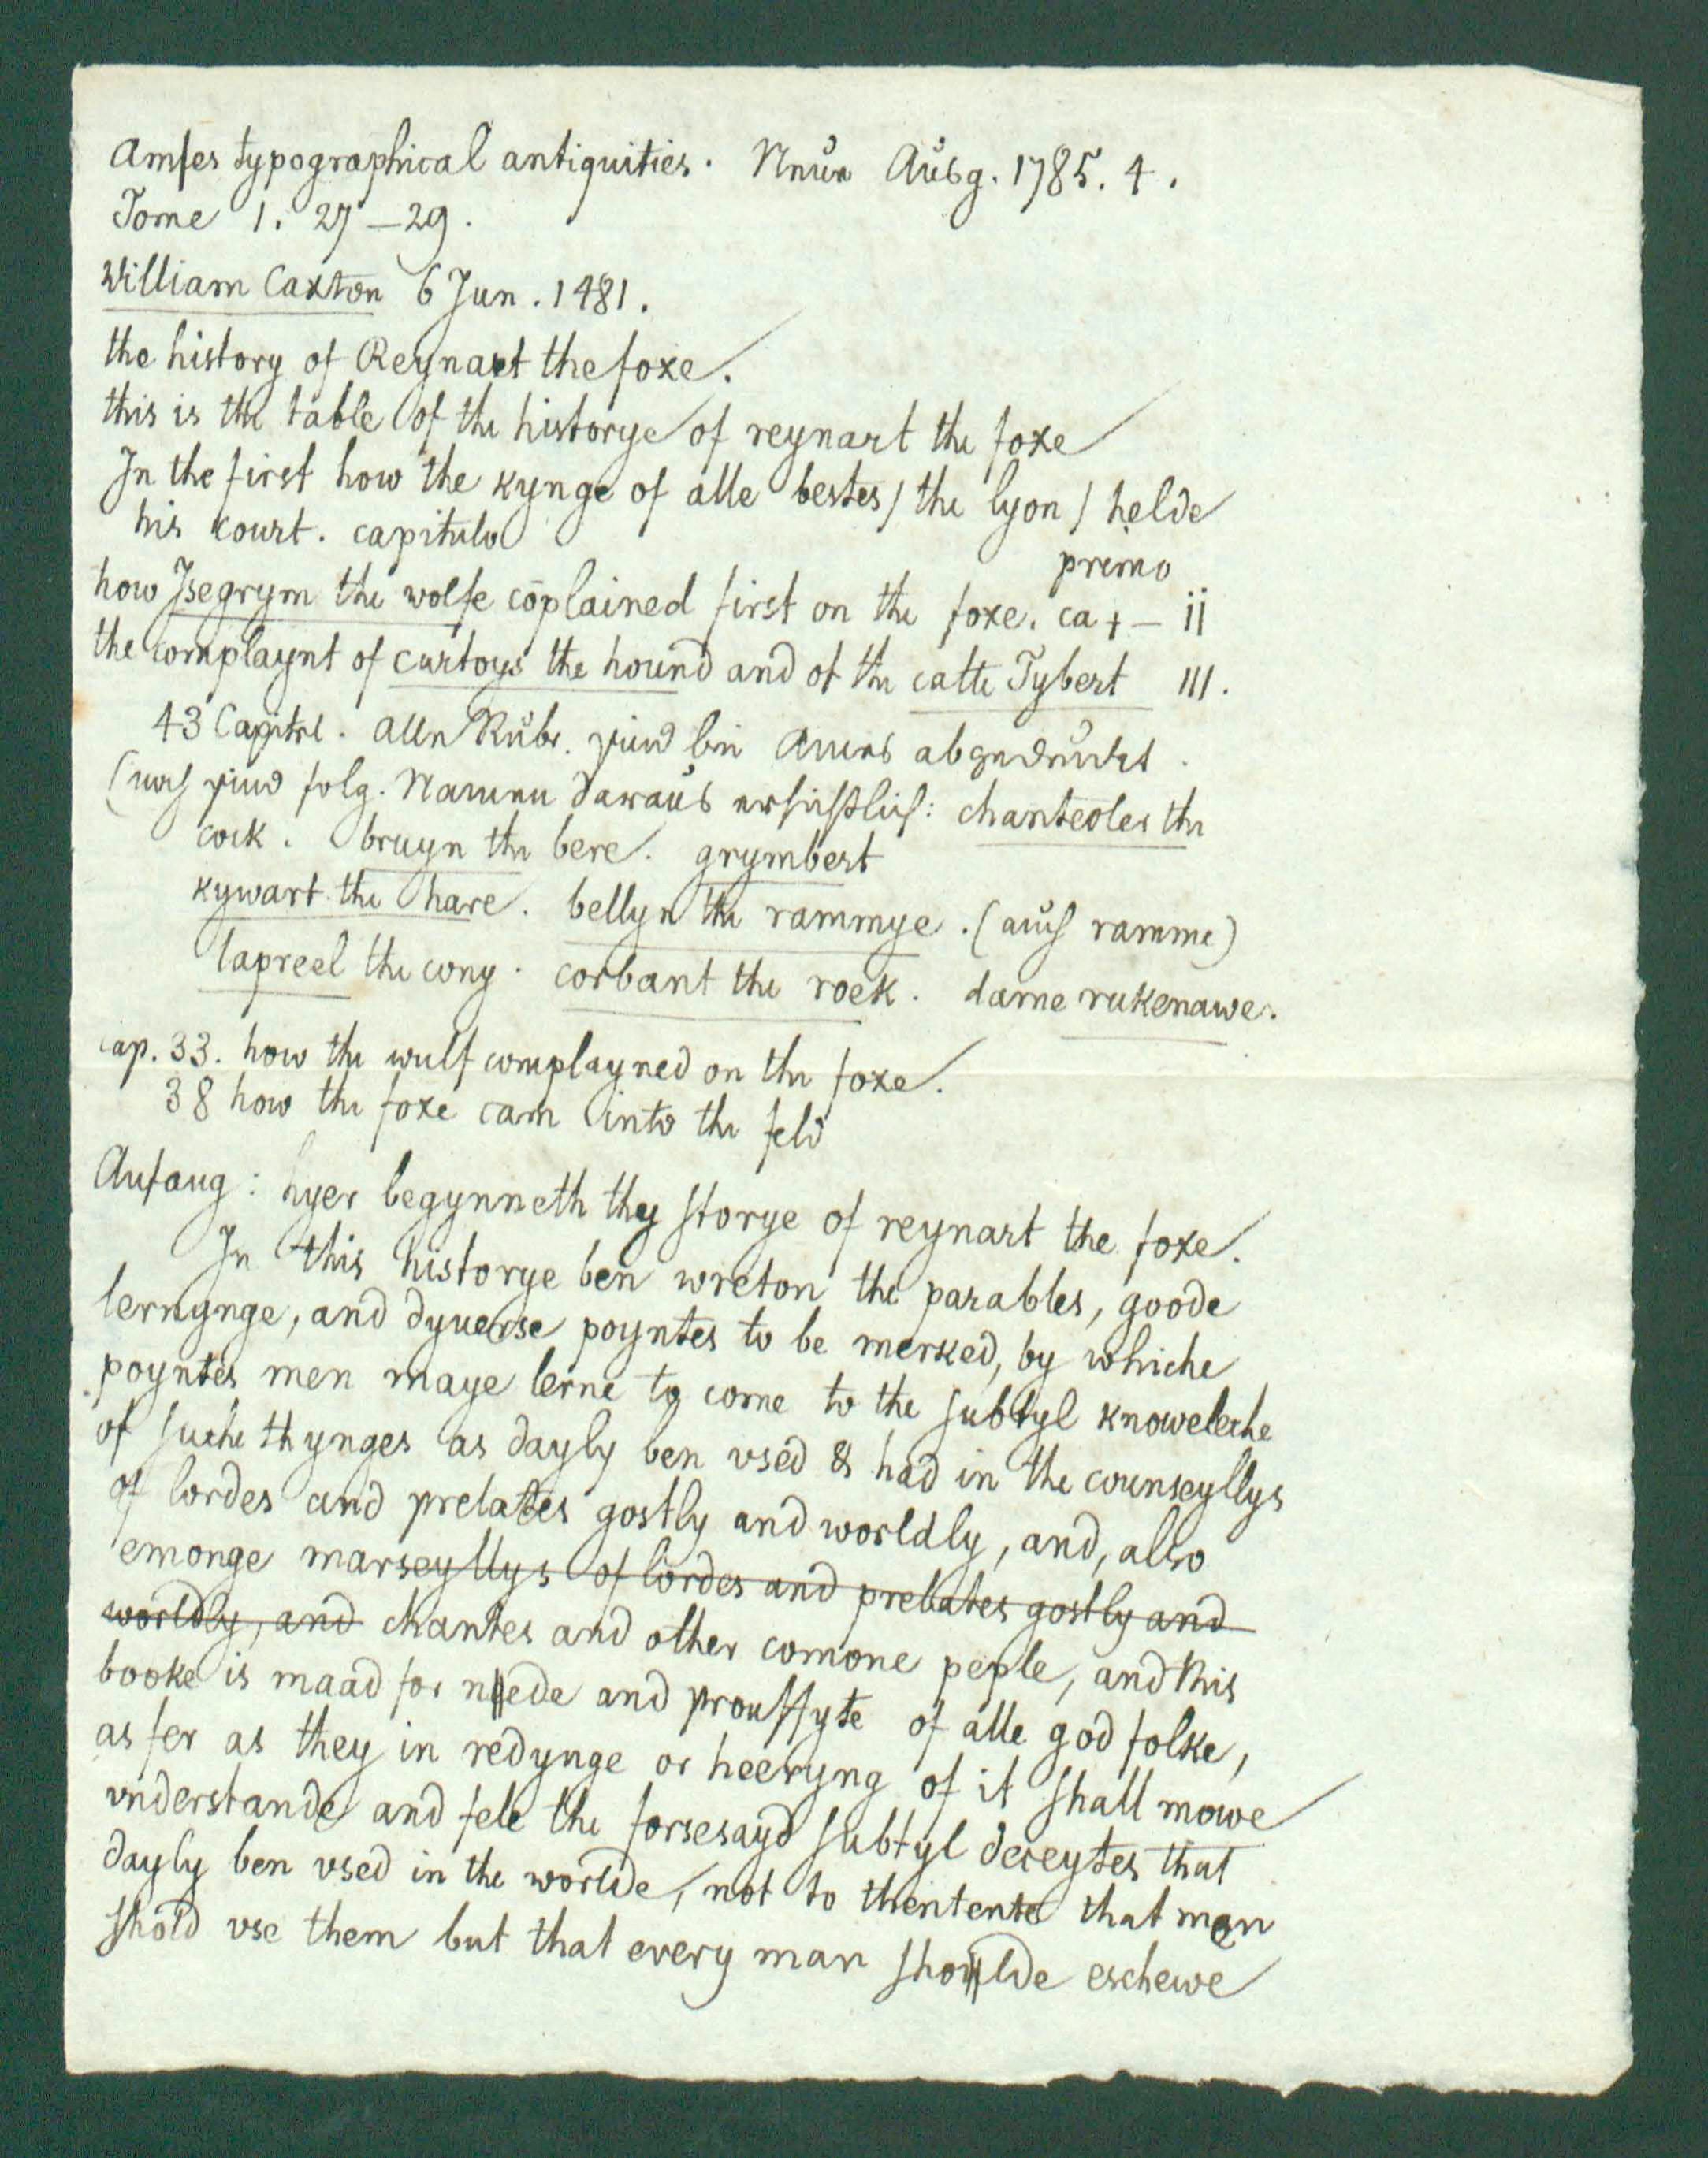 Amſes typographical antiquities. Neue Ausg. 1785. 4.
Tome 1. 27–29.
William Caxton 6 Jun. 1481.
the history of Reynart the foxe.
this is the table of the historye of reynart the foxe
In the first how the kynge of alle bestes / the lyon / helde
his court. capitulo primo
how Isegrym the wolfe cōplained first on the foxe. ca + – ii
the complaynt of curtoys the hound and of the catte Tybert III.
43 Capitel. Alle Rubr. sind bei Ames abgedruckt.
(noch sind folg. Namen daraus ersichtlich: chantecler the
cock. bruyn the bere. grymbert
kywart the hare. bellyn the rammye. (auch ramme)
lapreel the cony. corbant the roek. dame rukenawe.
cap. 33. how the wulf complayned on the foxe.
38 how the foxe cam into the feld
Anfang: hyer begynneth thy ſtorye of reynart the foxe.
In this historye ben wreton the parables, goode
lernynge, and dyuerse poyntes to be merked, by whiche
poyntes men maye lerne to come to the ſubtyl knoweleche
of ſuche thynges as dayly ben vsed & had in the counseyllys
of lordes and prelates gostly and worldly, and, also
emonge marseyllys of lordes and prelates gostly and
worldly, and chantes and other comone peple, and this
booke is maad for nede and prouffyte of alle god folke,
as fer as they in redynge or heeryng of it ſhall mowe
vnderstande and fele the forsesayd ſubtyl deceytes that
dayly ben vsed in the worlde, not to thentente that men
ſhold vse them but that every man ſholde eschewe